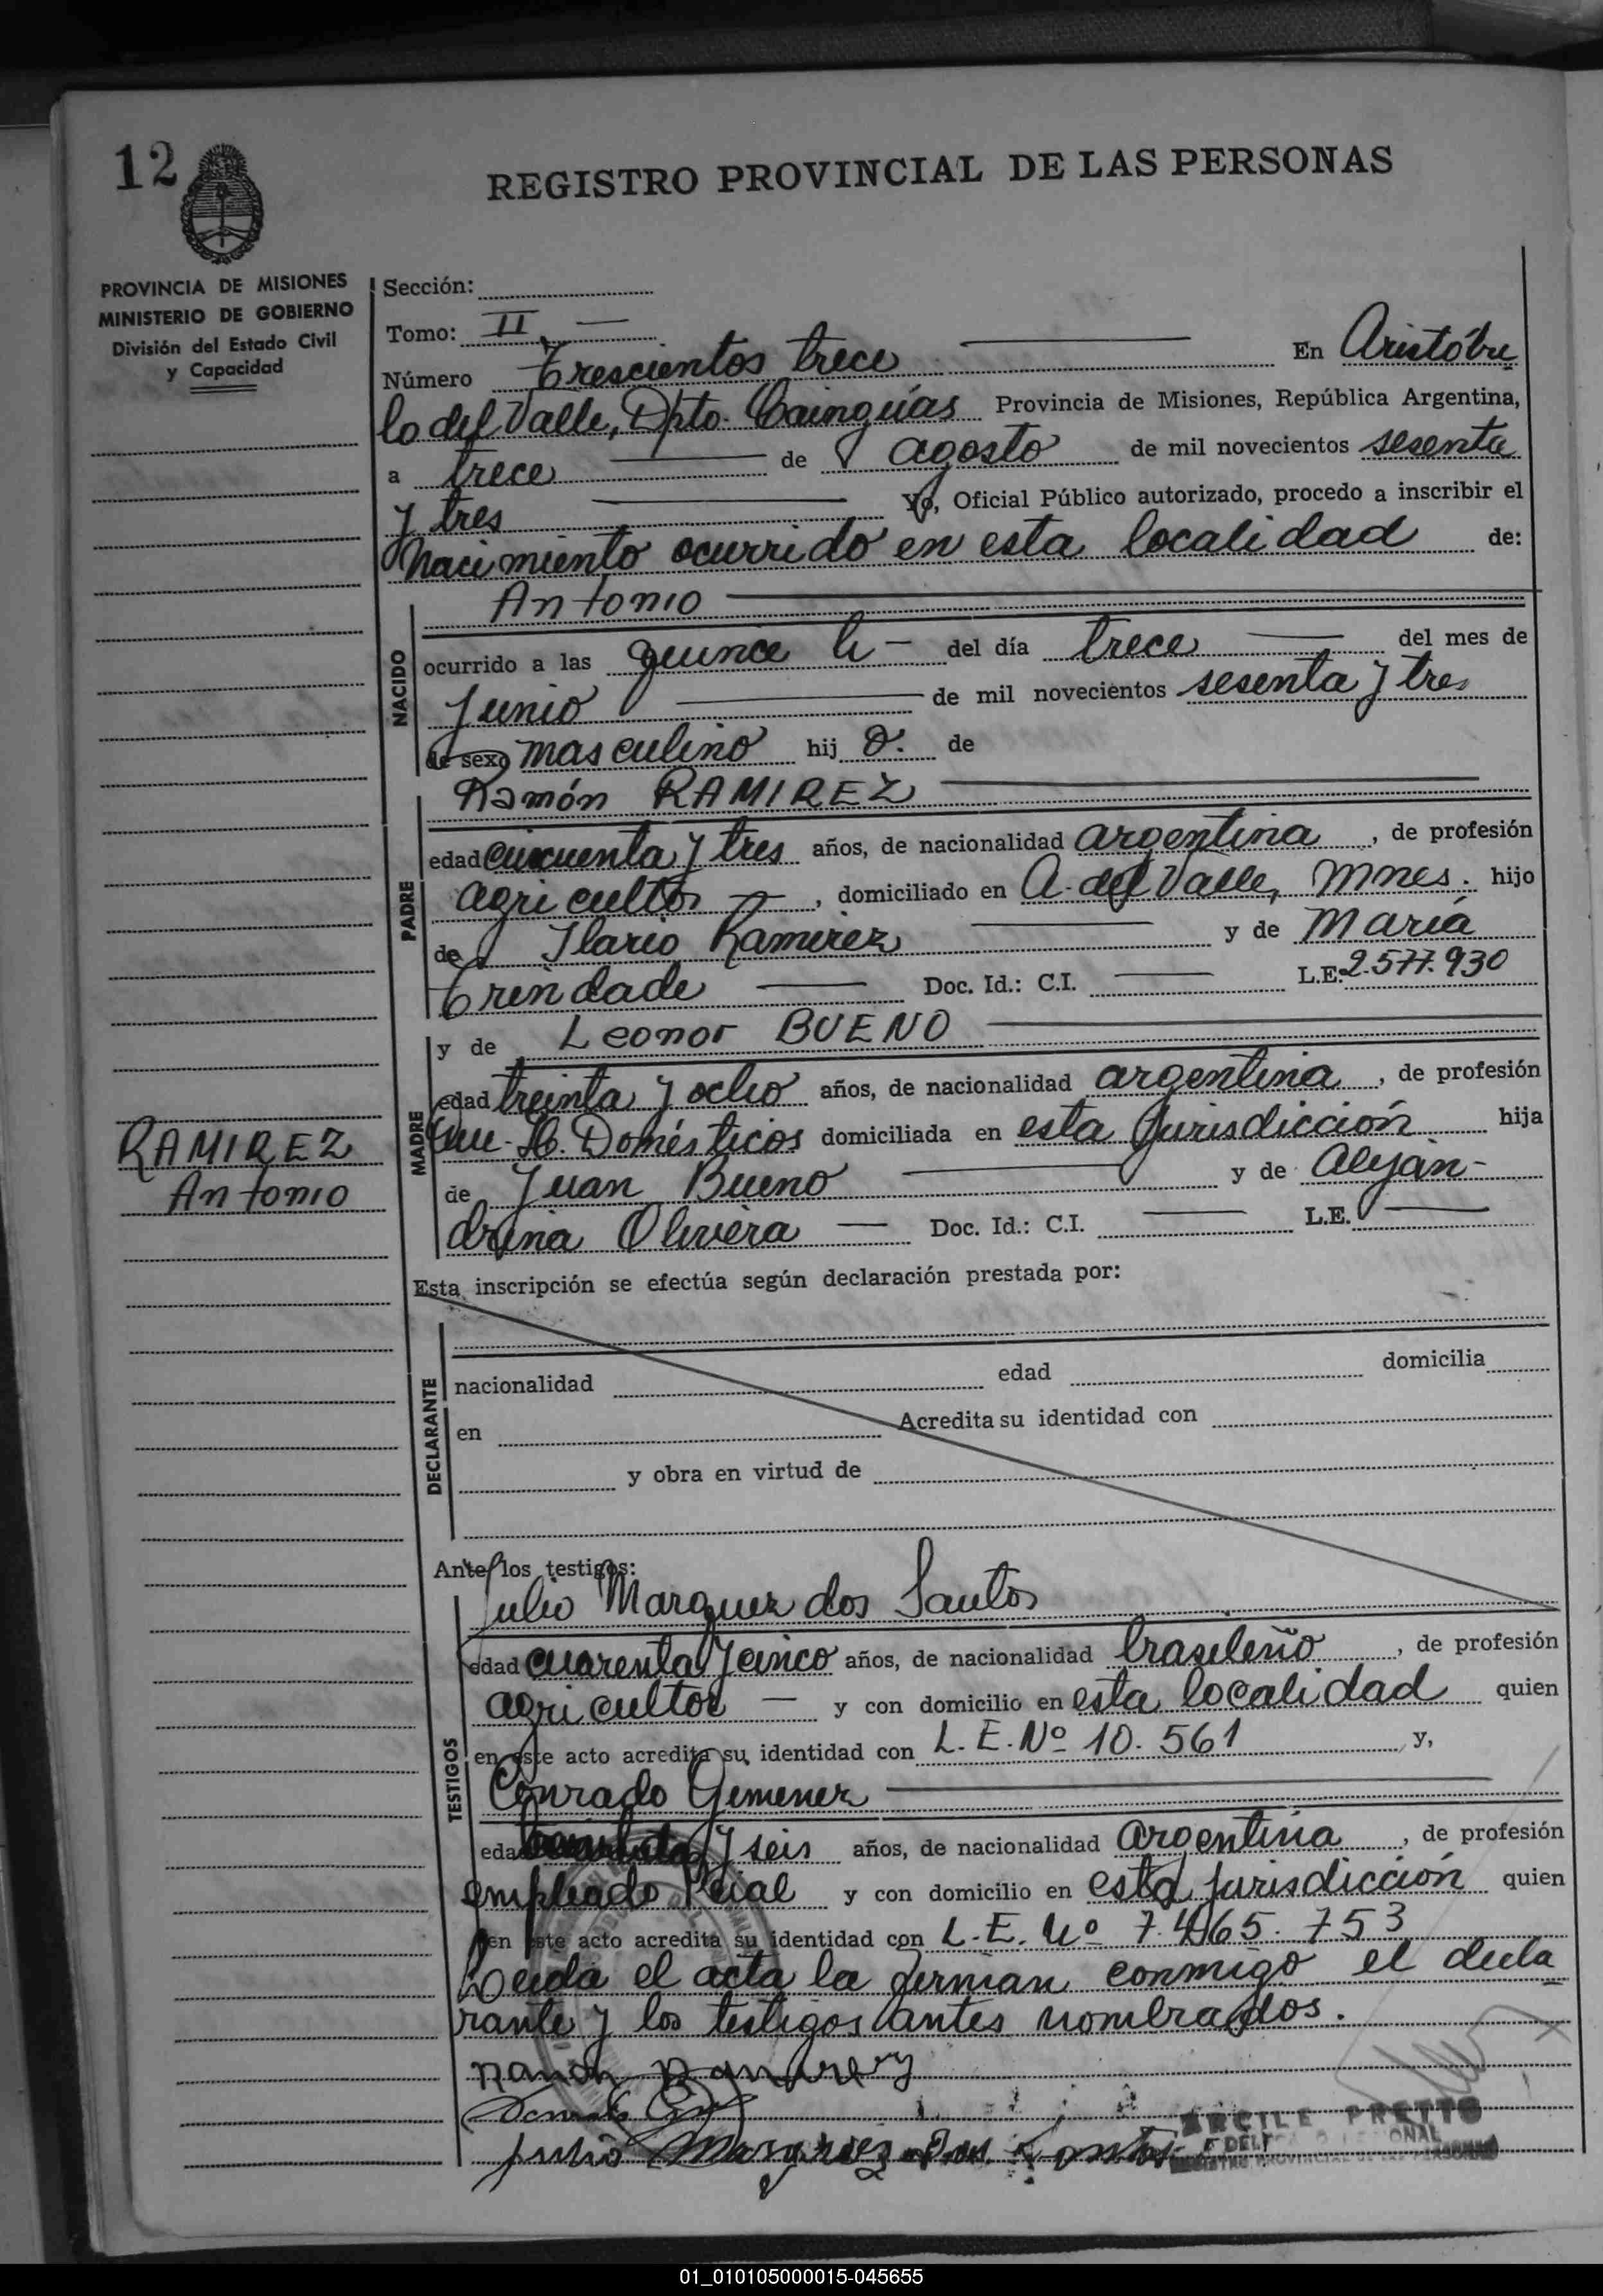 12
REGISTRO PROVINCIAL DE LAS PERSONAS
PROVINCIA DE MISIONES
MINISTERIO DE GOBIERNO
División del Estado Civil
y Capacidad
Sección:
Tomo: II. —
Número Trescientos trece — En Aristóbu
lo del Valle, Dpto. Cainguás Provincia de Misiones, República Argentina,
a trece — de agosto de mil novecientos sesenta
y tres — Yo, Oficial Público autorizado, procedo a inscribir el
Nacimiento ocurrido en esta localidad de:
NACIDO
Antonio —
ocurrido a las quince h — del día trece — del mes de
Junio — de mil novecientos sesenta y tres
de sexo masculino hij o. de
PADRE
Ramón RAMIREZ —
edad cincuenta y tres años, de nacionalidad argentina, de profesión
agricultor —, domiciliado en A. del Valle, Mnes. hijo
de Ilario Ramirez — y de María
Trindade — Doc. Id.: C.I. — L.E. 2.577.930
MADRE
y de Leonor BUENO —
edad treinta y ocho años, de nacionalidad argentina, de profesión
Domésticos domiciliada en esta jurisdicción hija
de Juan Bueno — y de Alejan-
drina Oliviera — Doc. Id.: C.I. — L.E. —
RAMIREZ
Antonio
Esta inscripción se efectúa según declaración prestada por:
DECLARANTE
nacionalidad edad domicilia
en Acredita su identidad con
y obra en virtud de
Ante los testigos:
TESTIGOS
Julio Marquez dos Santos
edad cuarenta y cinco años, de nacionalidad brasileño, de profesión
agricultor — y con domicilio en esta localidad quien
en este acto acredita su identidad con L.E. Nº 10.561 y,
Conrado Gimenez —
edad y seis años, de nacionalidad argentina, de profesión
empleado y con domicilio en esta jurisdicción quien
en este acto acredita su identidad con L.E. Nº 7.465.753
Leida el acta la firman conmigo el decla
rante y los testigos antes nombrados.
Ramon Ramirez
Julio Marquez dos Santos
ARCILE PRETTO
REGISTRO PROVINCIAL DE LAS PERSONAS
01_010105000015-045655